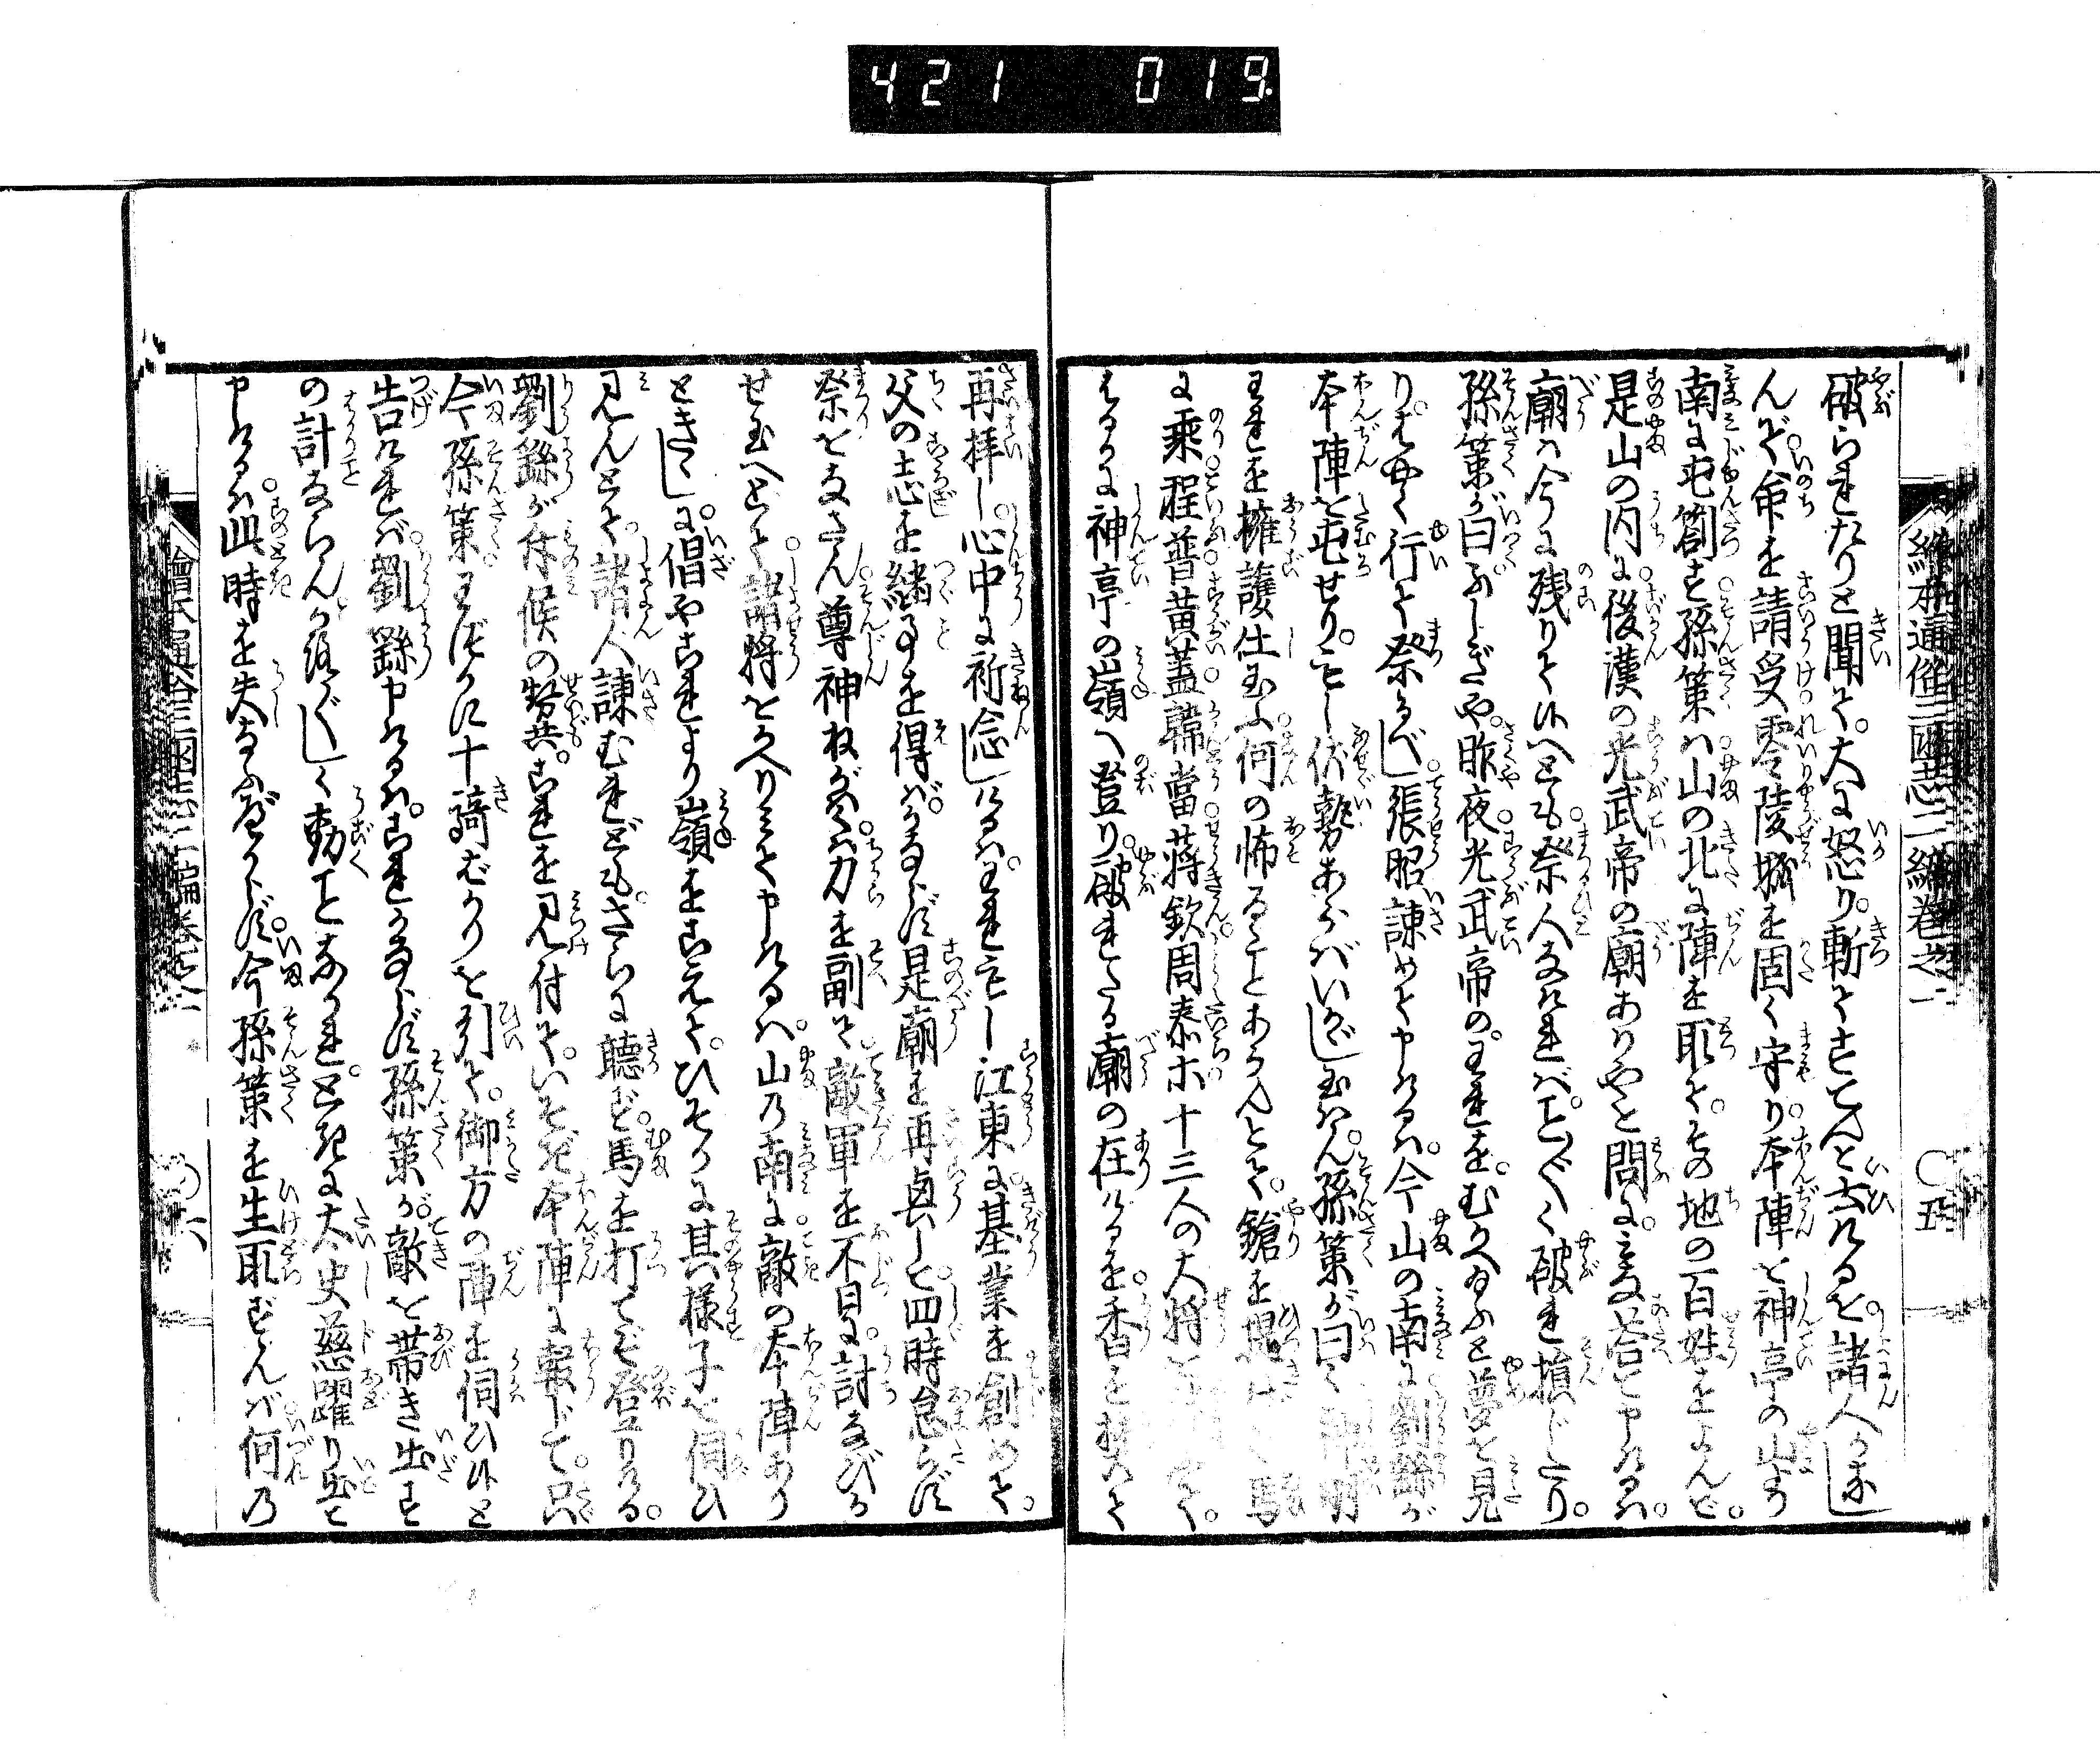 421 019.
繪本通俗三國志二編卷之一
〇五
破られたりと聞て。大に怒り。斬てすてんと云けるを諸人かなし
んで命を請受零陵城を固く守り本陣を神亭の山より
南に屯劄す孫策は山の北に陣を取て。その地の百姓をよんど。
是山の内に後漢の光武帝の廟ありやと問に。答て申けるは。
廟は今に残りて候へども祭人なければ。ことごとく破れ損じたり。
孫策が曰ふしぎや。昨夜光武帝の。われを。むかへ給ふと夢を見
り。はやく行て祭るべし張昭諫めて申けるは。今山の南に劉繇が
本陣を屯せり。もし伏勢あらばいかゞし玉はん。孫策が曰く神明
われを擁護し玉ふ何の怖るゝことあらんとて。鎗を提げ馬
に乗程普黄蓋韓當蒋欽周泰ホ十三人の大将
はるかに神亭の嶺へ登り。破れたる廟の在けるを香を焚て
再拝し心中に祈念しけるは。われもし江東に基業を創めて。
父の志を継事を得ば。かならず是廟を再興し四時怠らず
祭をなさん尊神ねがはくは力を副て敵軍を不日に討なびか
せ玉へとて諸将をかへりみて申けるは。山の南に敵の本陣あり
ときく。いざやこれより嶺をこえて。ひそかに其様子を伺ひ
見んとて。諸人諫むれども。さらに聴ず。馬を打てぞ登りける。
劉繇が斥候の勢共。これを見付て。いそぎ本陣に報じて。只
今孫策わづかに十騎ばかりを引て。御方の陣を伺ひ候と
告ければ。劉繇申けるは。これかならず孫策が敵を帯き出す
の計ならんかろ〴〵しく動ことなかれ。ときに太史慈躍り出て
申けるは。此時を失なふべからず。今孫策を生取ずんば何の
繪本通俗三國志二編卷之一
〇六